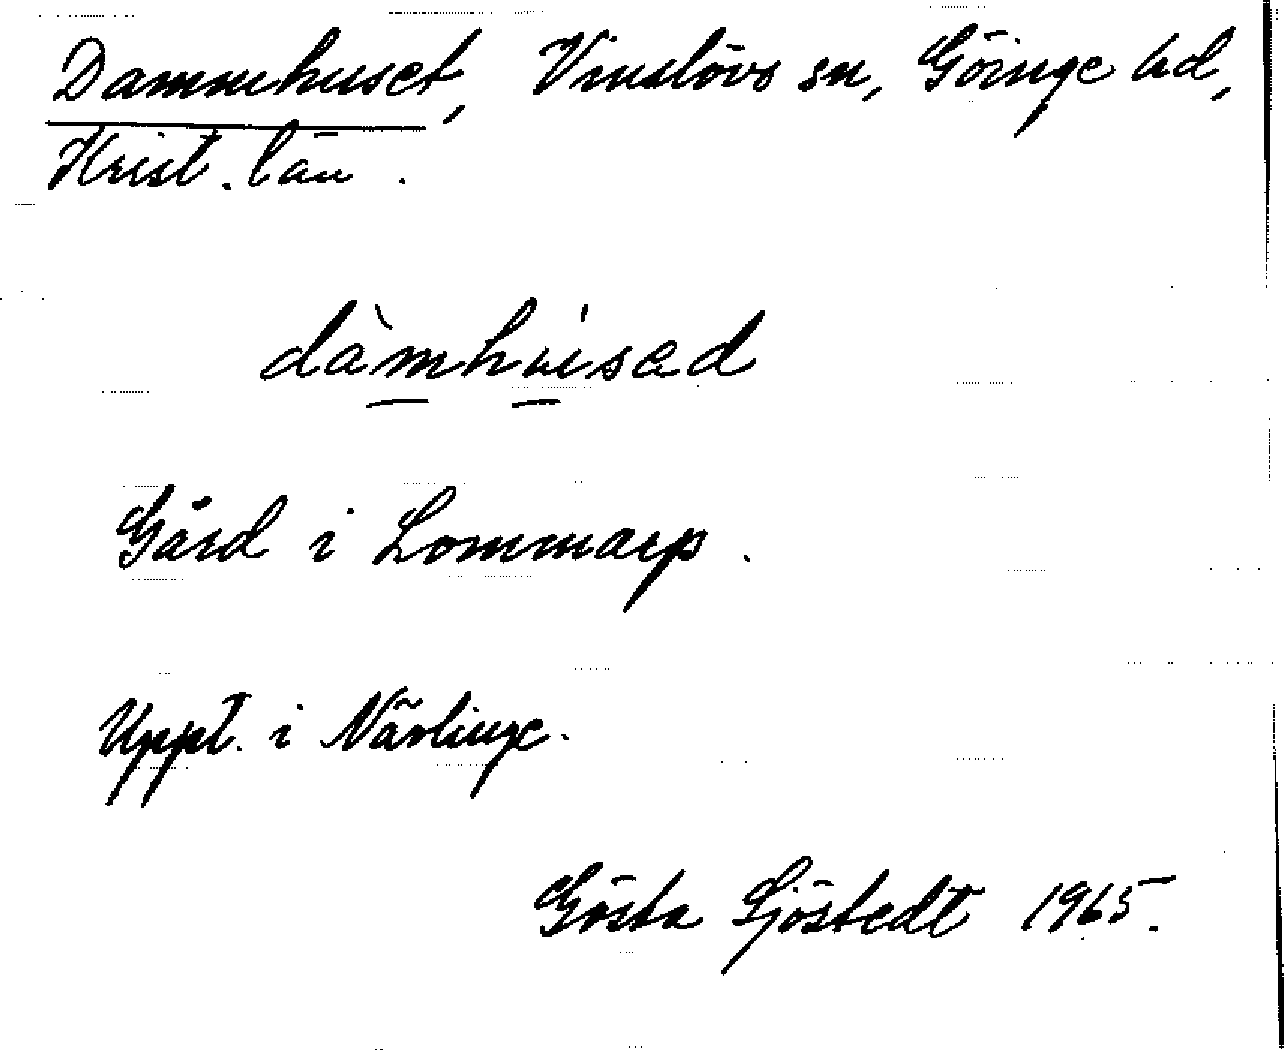 Dammhuset, Vinslövs sn, Göinge hd,
Krist. län.
dàmhúsad
Gård i Lommarp.
Uppt. i Nävlinge.
Gösta Sjöstedt 1965.